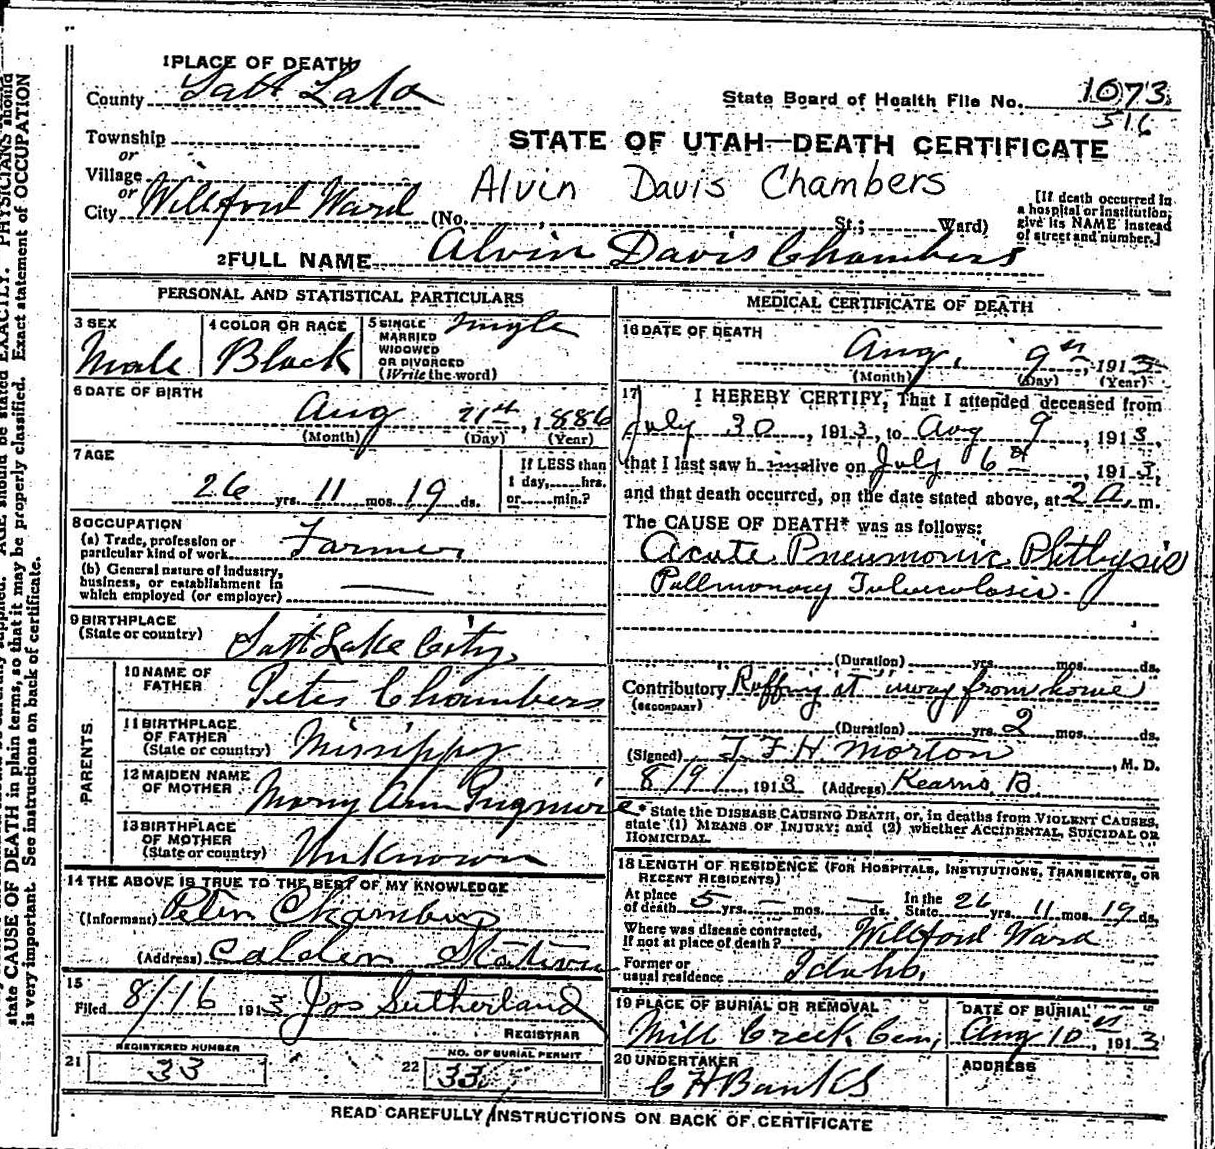 1 PLACE OF DEATH
County Salt Lake
State Board of Health File No. 1073
516
Township
or
Village
or
City Willford Ward (No. St.; Ward)
STATE OF UTAH—DEATH CERTIFICATE
Alvin Davis Chambers
[If death occurred in
a hospital or institution,
give its NAME instead
of street and number.]
2 FULL NAME Alvin Davis Chambers
PERSONAL AND STATISTICAL PARTICULARS
3 SEX
Male
4 COLOR OR RACE
Black
5 SINGLE
MARRIED
WIDOWED
OR DIVORCED
(Write the word)
Single
6 DATE OF BIRTH
Aug 21st, 1886
(Month) (Day) (Year)
7 AGE
26 yrs. 11 mos. 19 ds.
If LESS than
1 day, hrs.
or min.?
8 OCCUPATION
(a) Trade, profession or
particular kind of work Farmer
(b) General nature of industry,
business, or establishment in
which employed (or employer)
9 BIRTHPLACE
(State or country) Salt Lake City,
PARENTS
10 NAME OF
FATHER Peter Chambers
11 BIRTHPLACE
OF FATHER
(State or country) Missippy
12 MAIDEN NAME
OF MOTHER Mary Ann
13 BIRTHPLACE
OF MOTHER
(State or country) Unknown
14 THE ABOVE IS TRUE TO THE BEST OF MY KNOWLEDGE
(Informant) Peter Chambers
(Address) Calder Station
15
Filed 8/16 1913 Jos Sutherland
REGISTRAR
21 REGISTERED NUMBER
33
22 NO. OF BURIAL PERMIT
33
MEDICAL CERTIFICATE OF DEATH
16 DATE OF DEATH
Aug. 9th, 1913
(Month) (Day) (Year)
17 I HEREBY CERTIFY, That I attended deceased from
July 30, 1913, to Aug 9, 1913,
that I last saw h im alive on July 6th, 1913,
and that death occurred, on the date stated above, at 2 a. m.
The CAUSE OF DEATH* was as follows:
Acute Pneumonic Phthysis
Pullmonary Tuberculosis.
(Duration) yrs. mos. ds.
Contributory Ruffing it away from home
(SECONDARY)
(Duration) yrs. 2 mos. ds.
(Signed) T. F. H. Morton, M. D.
8/9, 1913 (Address) Kearns B.
* State the DISEASE CAUSING DEATH, or, in deaths from VIOLENT CAUSES,
state (1) MEANS OF INJURY; and (2) whether ACCIDENTAL, SUICIDAL OR
HOMICIDAL.
18 LENGTH OF RESIDENCE (FOR HOSPITALS, INSTITUTIONS, TRANSIENTS, OR
RECENT RESIDENTS)
At place
of death 5 yrs. — mos. — ds.
In the
State 26 yrs. 11 mos. 19 ds.
Where was disease contracted,
if not at place of death? Willford Ward
Former or
usual residence Idaho.
19 PLACE OF BURIAL OR REMOVAL
Mill Creek Cem,
DATE OF BURIAL
Aug 10th, 1913
20 UNDERTAKER
C H Banks
ADDRESS
READ CAREFULLY INSTRUCTIONS ON BACK OF CERTIFICATE
AGE should be stated EXACTLY. PHYSICIANS should
state CAUSE OF DEATH in plain terms, so that it may be properly classified. Exact statement of OCCUPATION
is very important. See instructions on back of certificate.